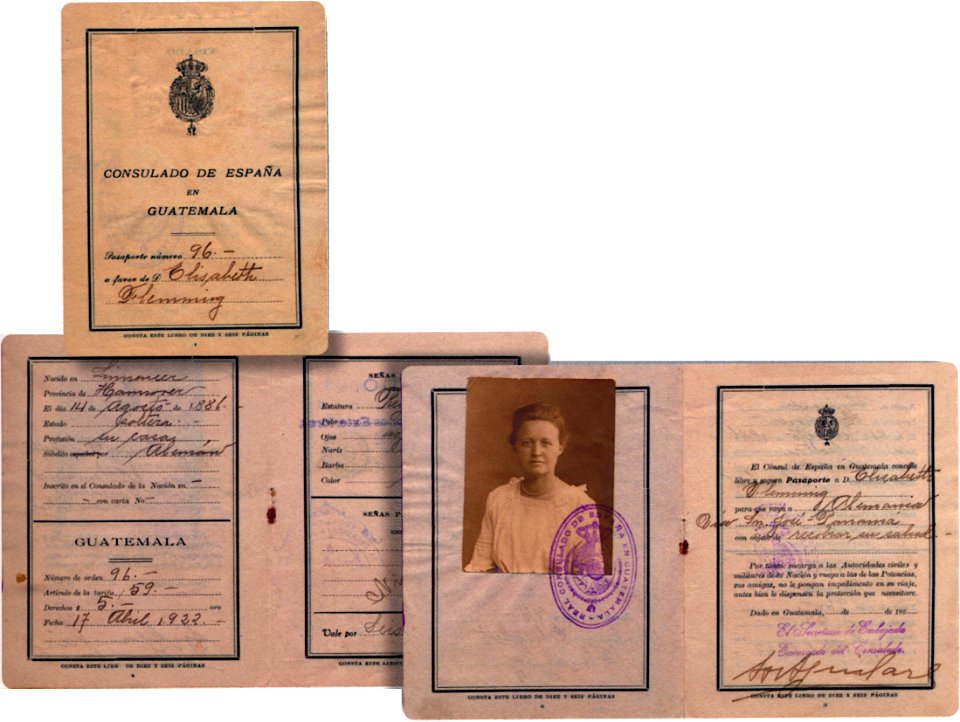 CONSULADO DE ESPAÑA
EN
GUATEMALA
Pasaporte número 96.-
a favor de D. Elisabeth
Flemming
CONSTA ESTE LIBRO DE DIEZ Y SEIS PÁGINAS
Nacido en
Provincia de Hannover
El día 14 de Agosto de 1886.-
Estado Soltera.-
Profesión su casa
Súbdito español por Alemán
Inscrito en el Consulado de la Nación en -
- con carta No -
GUATEMALA
Número de orden 96.-
Artículo de la tarifa 59.-
Derechos $ 5.- oro
Fecha 17 Abril 1922.-
CONSTA ESTE LIBRO DE DIEZ Y SEIS PÁGINAS
4
SEÑAS
Estatura
Pelo
Ojos
Nariz
Barba
Color
SEÑAS P
Vale por
CONSTA ESTE LIBRO DE
REAL CONSULADO DE ESPAÑA EN GUATEMALA
CONSTA ESTE LIBRO DE DIEZ Y SEIS PÁGINAS
El Cónsul de España en Guatemala concede
libre y seguro Pasaporte a D. Elisabeth
Flemming
para que vaya a Alemania
vía San José Panamá
con objeto de recobrar su salud.-
Por tanto: encarga a las Autoridades civiles y
militares de su Nación y ruega a las de las Potencias,
sus amigas, no le pongan impedimento en su viaje,
antes bien le dispensen la protección que necesitare.
Dado en Guatemala, de de 192
El Secretario de Embajada
Encargado del Consulado.
CONSTA ESTE LIBRO DE DIEZ Y SEIS PÁGINAS